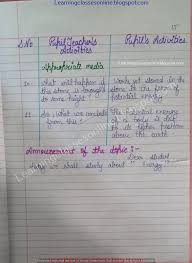 Learningclassesonline.blogspot.com
15
S.No Pupil Teacher's Activities Pupil's Activities
Appropriate media
10. What will happen if the stone is brought to some height?
Work get stored in the stone in the form of potential energy
11. So, what we conclude from this?
The Potential energy of a body is due to its higher position above the earth
Announcement of the topic :-
Dear student today we shall study about " Energy